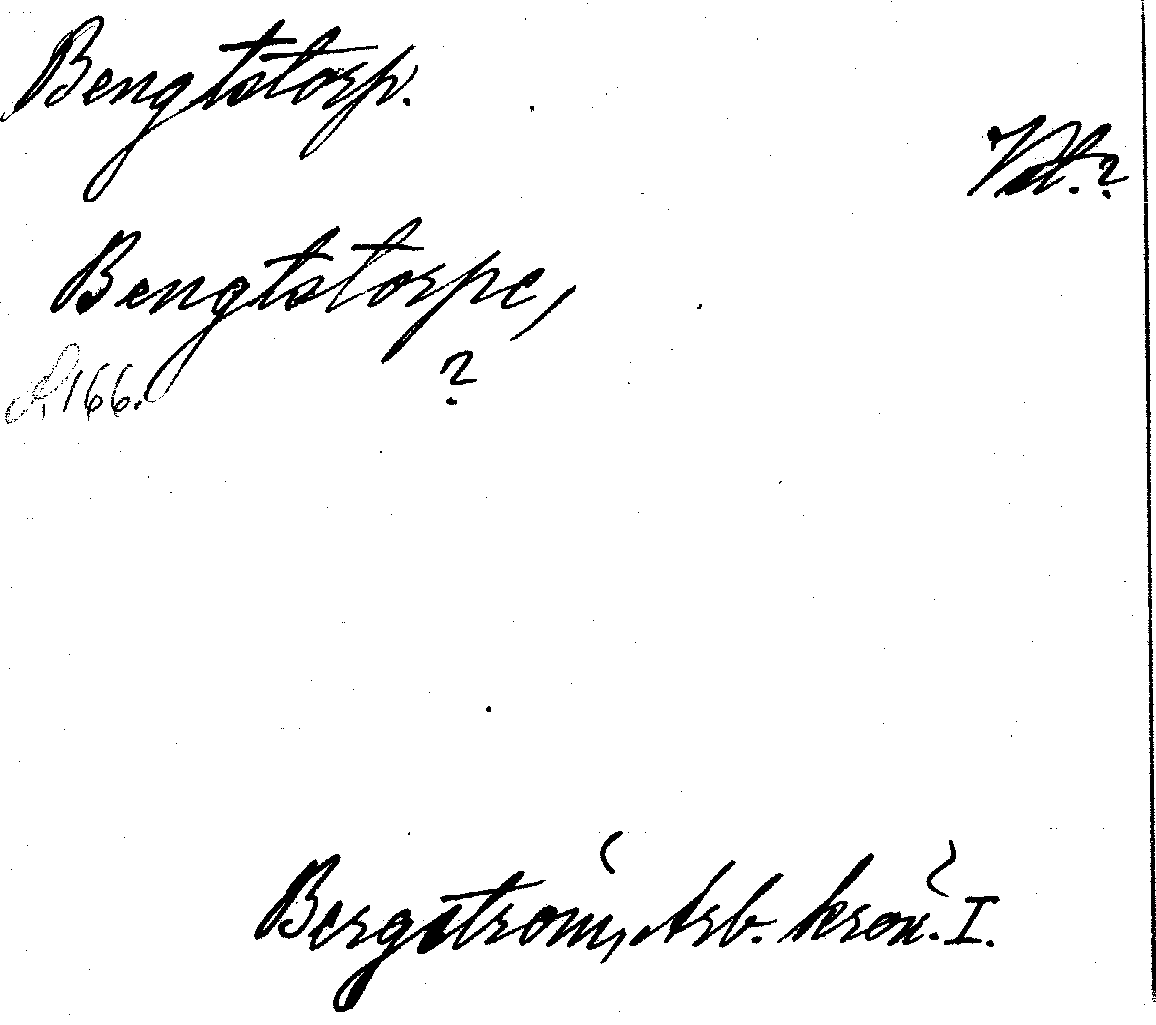 Bengtstorp.
Bengtstorpe,
?
s. 166.
Bergström, Arb. krön. I.